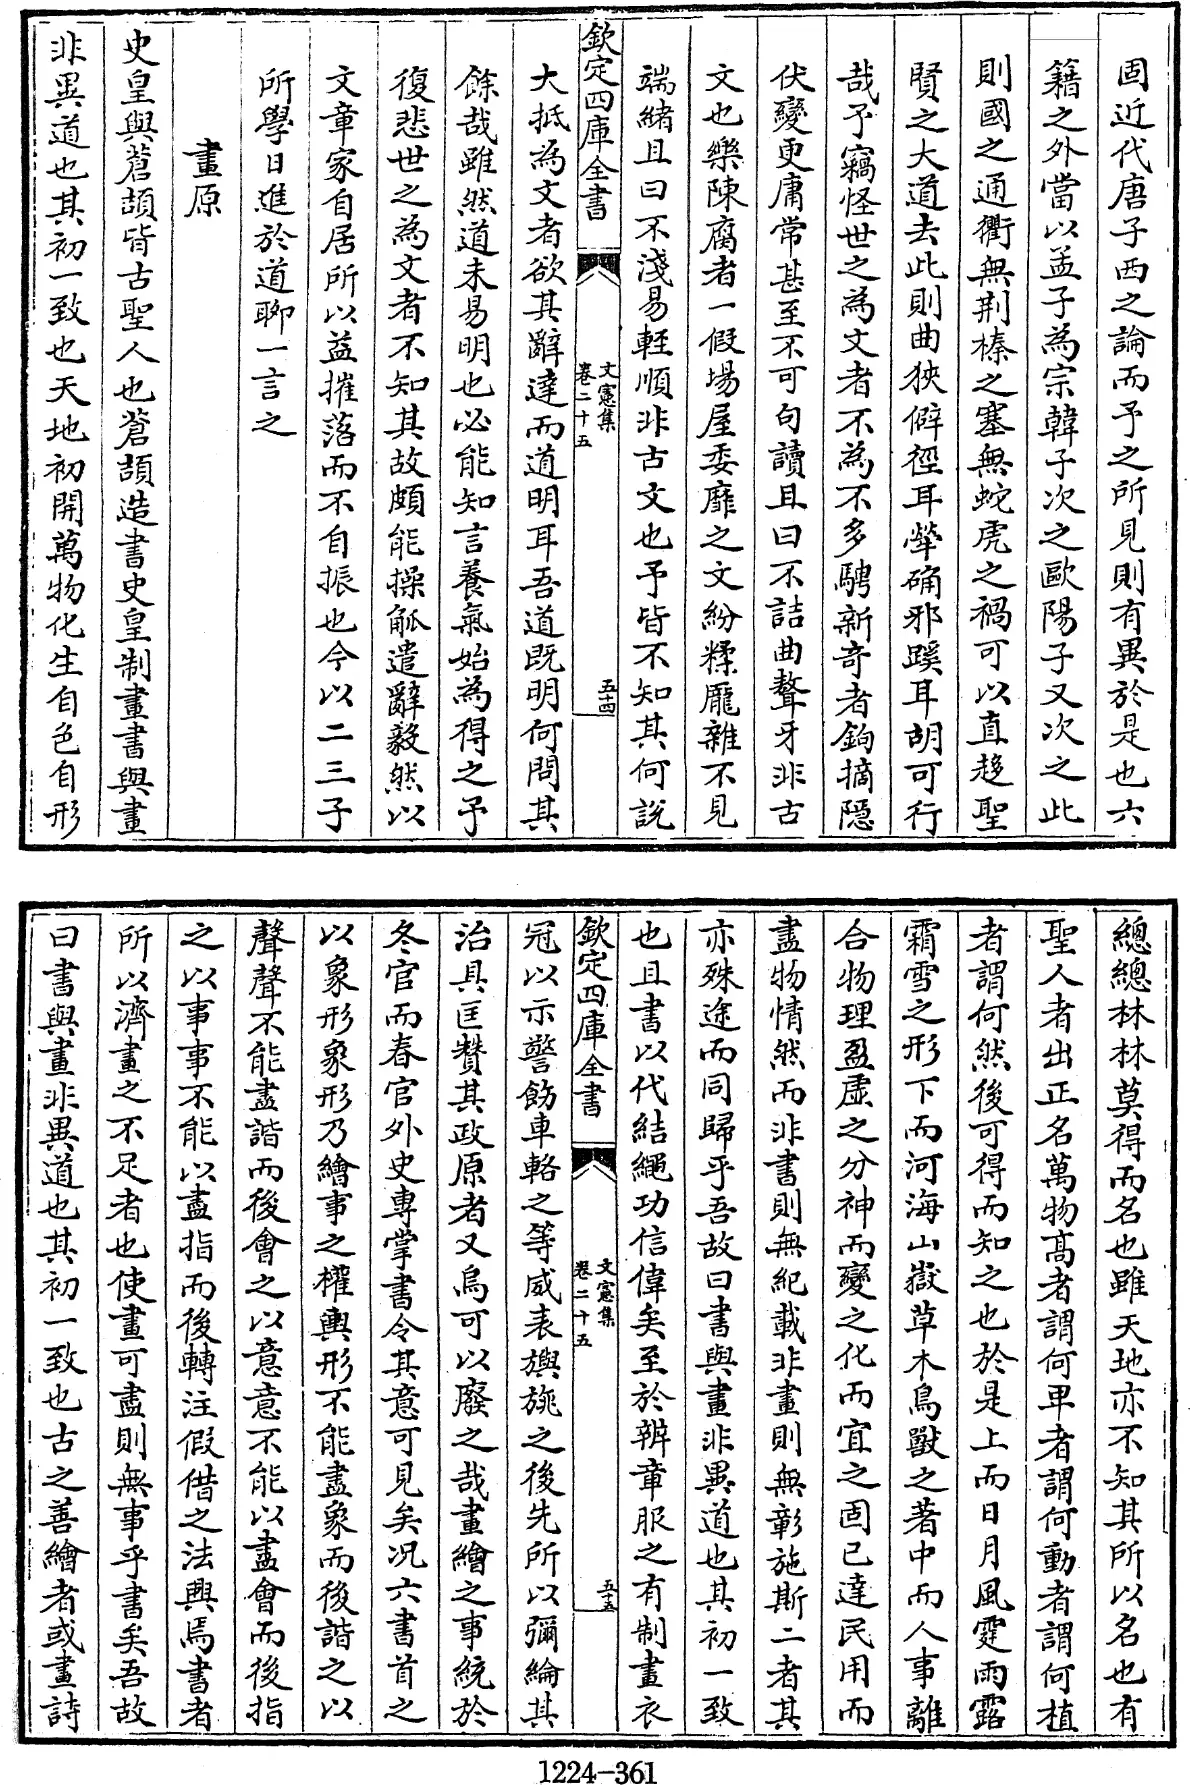 固近代唐子西之論而予之所見則有異於是也六
籍之外當以孟子為宗韓子次之歐陽子又次之此
則國之通衢無荆榛之塞無蛇虎之禍可以直趍聖
賢之大道去此則曲狹僻徑耳犖确邪蹊耳胡可行
哉予竊怪世之為文者不為不多騁新奇者鉤摘隱
伏變更庸常甚至不可句讀且曰不詰曲聱牙非古
文也樂陳腐者一假場屋委靡之文紛糅厖雜不見
端緒且曰不淺易輕順非古文也予皆不知其何說
欽定四庫全書
文憲集
卷二十五
五十四
大抵為文者欲其辭達而道明耳吾道既明何問其
餘哉雖然道未易明也必能知言養氣始為得之予
復悲世之為文者不知其故頗能操觚遣辭毅然以
文章家自居所以益摧落而不自振也今以二三子
所學日進於道聊一言之
畫原
史皇與蒼頡皆古聖人也蒼頡造書史皇制畫書與畫
非異道也其初一致也天地初開萬物化生自色自形
總總林林莫得而名也雖天地亦不知其所以名也有
聖人者出正名萬物高者謂何卑者謂何動者謂何植
者謂何然後可得而知之也於是上而日月風霆雨露
霜雪之形下而河海山嶽草木鳥獸之著中而人事離
合物理盈虛之分神而變之化而宜之固已達民用而
盡物情然而非書則無紀載非畫則無彰施斯二者其
亦殊途而同歸乎吾故曰書與畫非異道也其初一致
也且書以代結繩功信偉矣至於辨章服之有制畫衣
欽定四庫全書
文憲集
卷二十五
五十五
冠以示警飭車輅之等威表旟旐之後先所以彌綸其
治具匡贊其政原者又烏可以廢之哉畫繪之事統於
冬官而春官外史專掌書令其意可見矣况六書首之
以象形象形乃繪事之權輿形不能盡象而後諧之以
聲聲不能盡諧而後會之以意意不能以盡會而後指
之以事事不能以盡指而後轉注假借之法興焉書者
所以濟畫之不足者也使畫可盡則無事乎書矣吾故
曰書與畫非異道也其初一致也古之善繪者或畫詩
1224-361